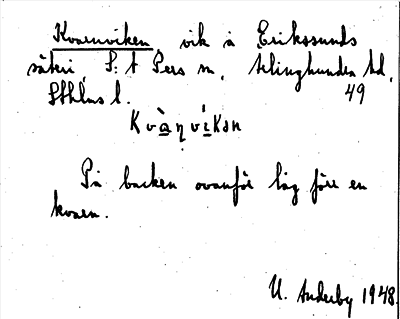 Kvarnviken, vik å Erikssunds
säteri, S:t Pers sn, Ærlinghundra hd,
Sthlms l. 49
Kvàṇvíkən
På backen ovanför låg förr en
kvarn.
U. Anderby 1948.